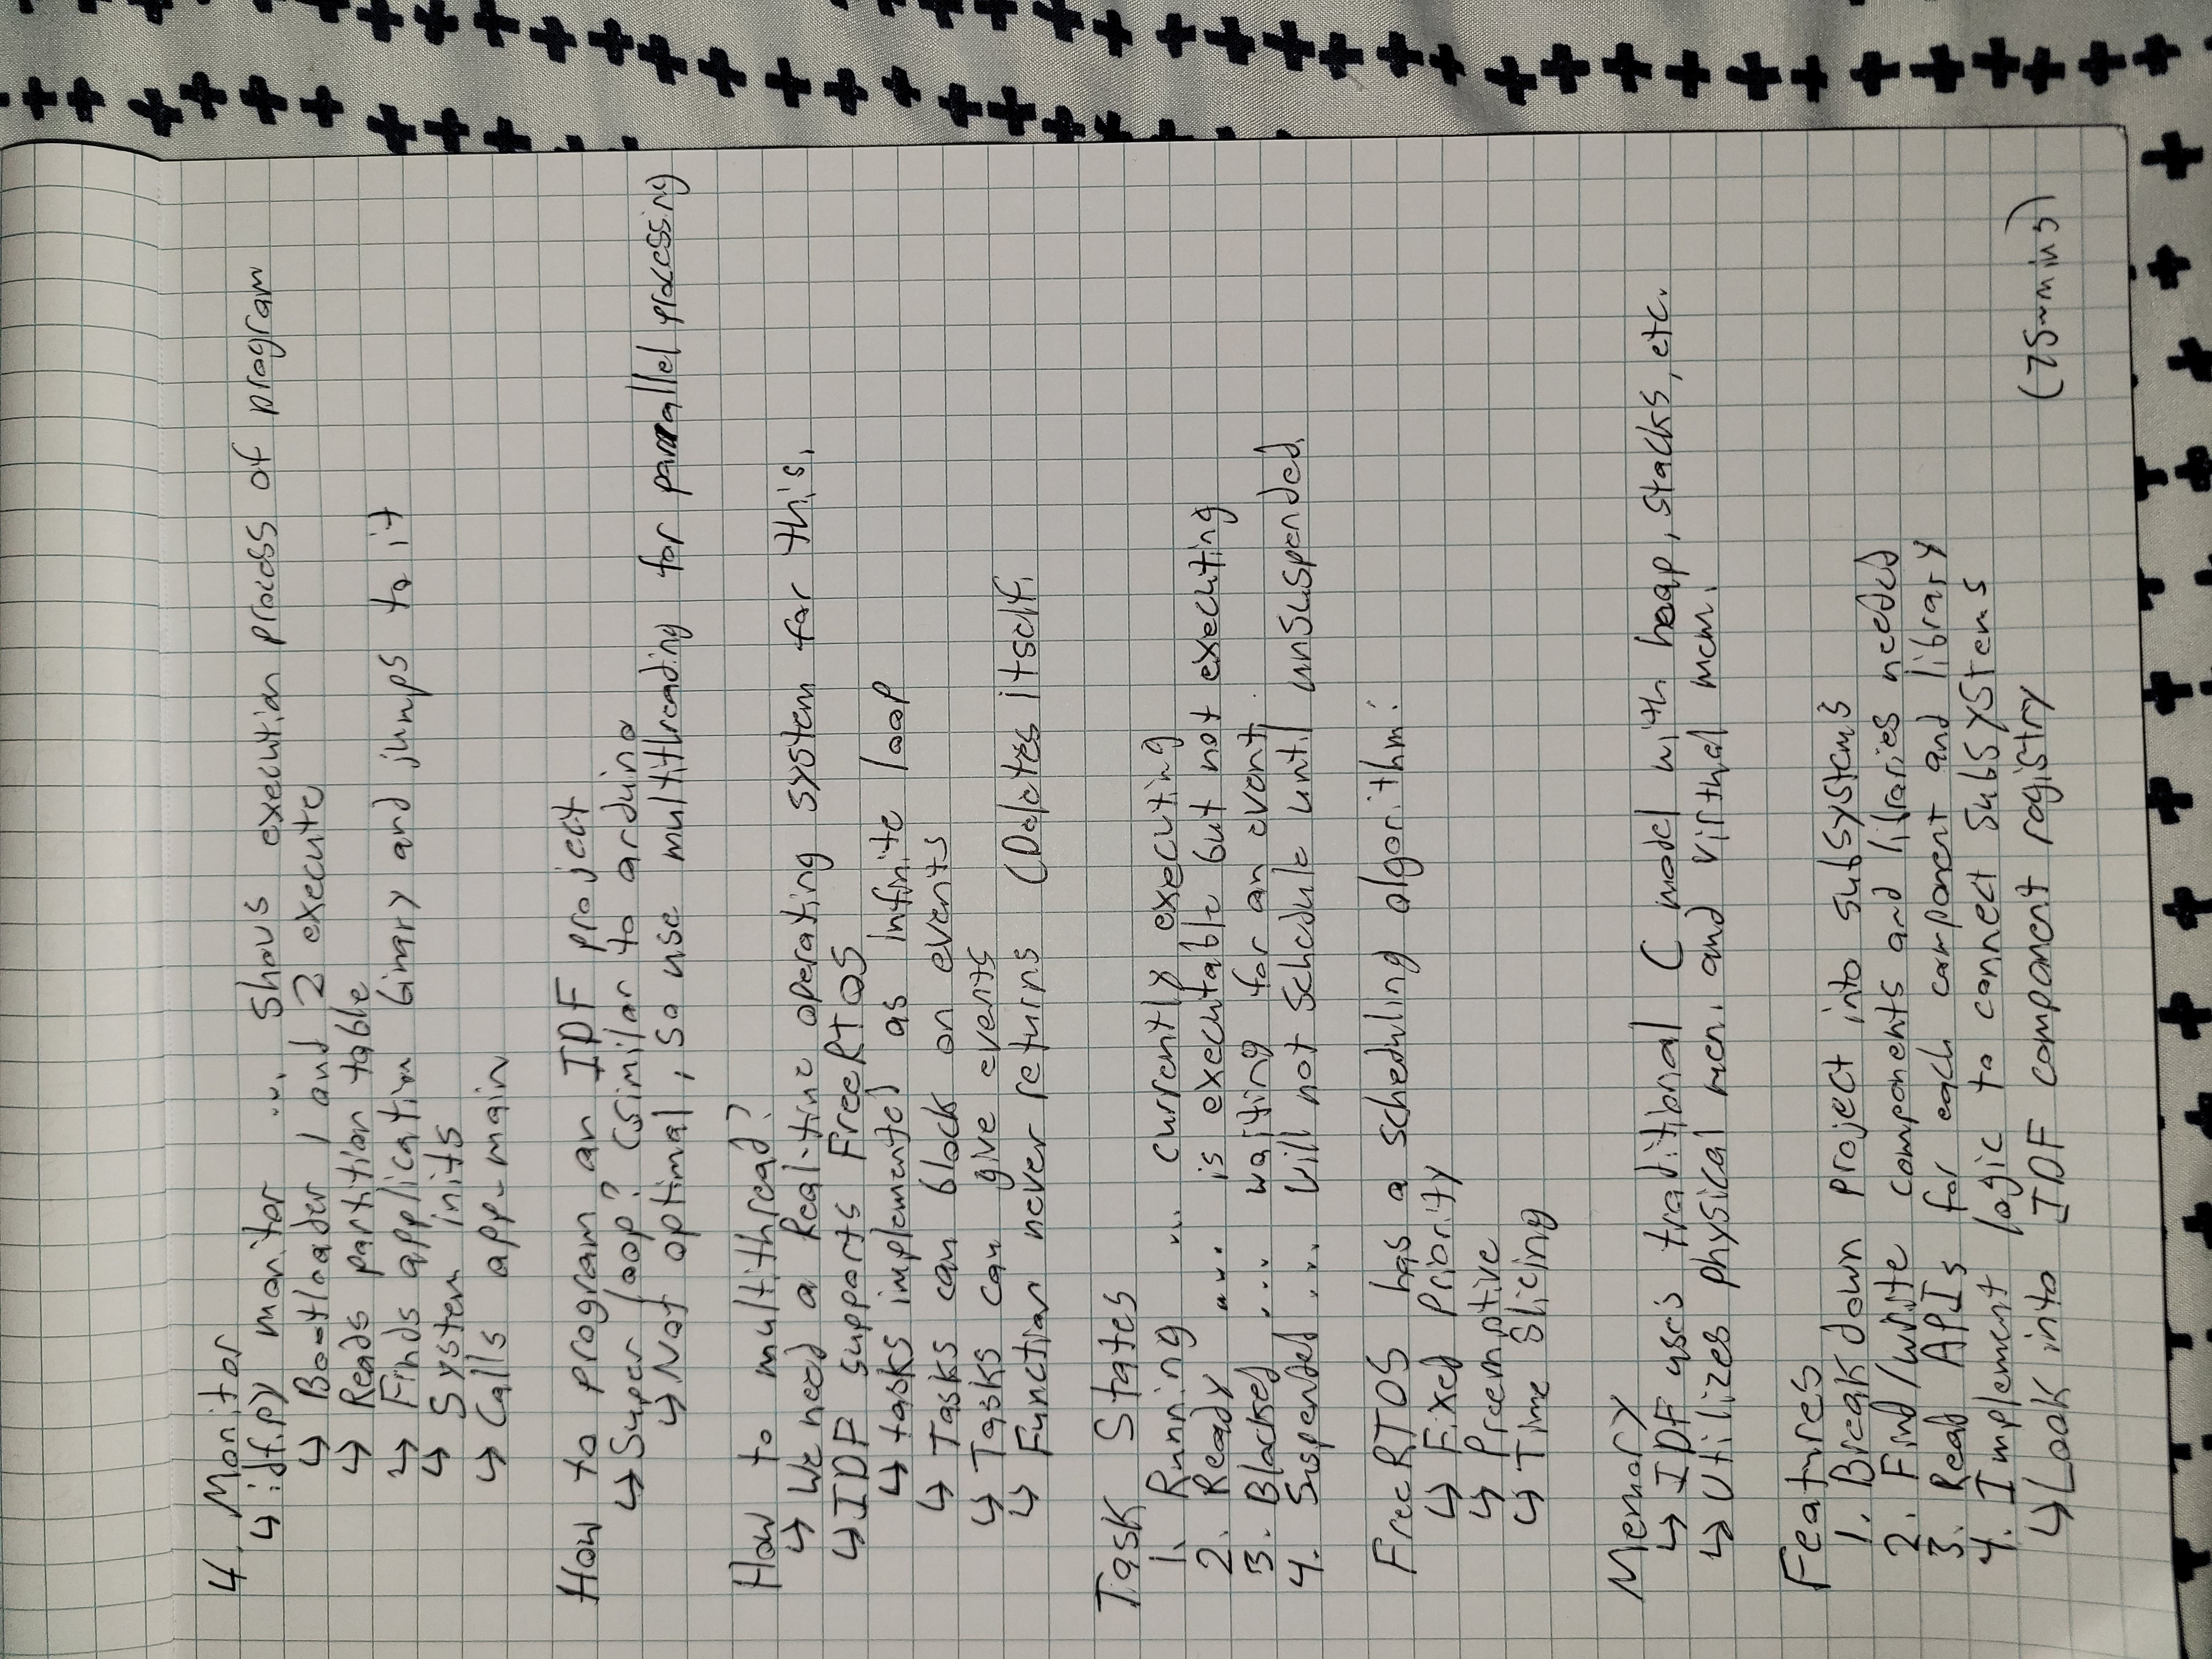 4. Monitor
↳ idf.py monitor ... shows execution process of program
↳ Bootloader 1 and 2 execute
↳ Reads partition table
↳ Finds application binary and jumps to it
↳ System inits
↳ Calls app-main
How to program an IDF project
↳ Super loop? (similar to arduino
↳ Not optimal, so use multithreading for parallel processing
How to multithread?
↳ We need a Real-time operating system for this.
↳ IDF supports FreeRTOS
↳ tasks implemented as infinite loop
↳ Tasks can block on events
↳ Tasks can give events
↳ Function never returns (Deletes itself.
Task States
1. Running ... currently executing
2. Ready ... is executable but not executing
3. Blocked ... waiting for an event.
4. Suspended ... will not schedule until unsuspended.
FreeRTOS has a scheduling algorithm:
↳ Fixed Priority
↳ Preemptive
↳ Time Slicing
Memory
↳ IDF uses traditional C model with heap, stacks, etc.
↳ Utilizes physical mem. and virtual mem.
Features
1. Break down project into subsystems
2. Find/write components and libraries needed
3. Read APIs for each component and library
4. Implement logic to connect subsystems
↳ Look into IDF component registry
(75mins)